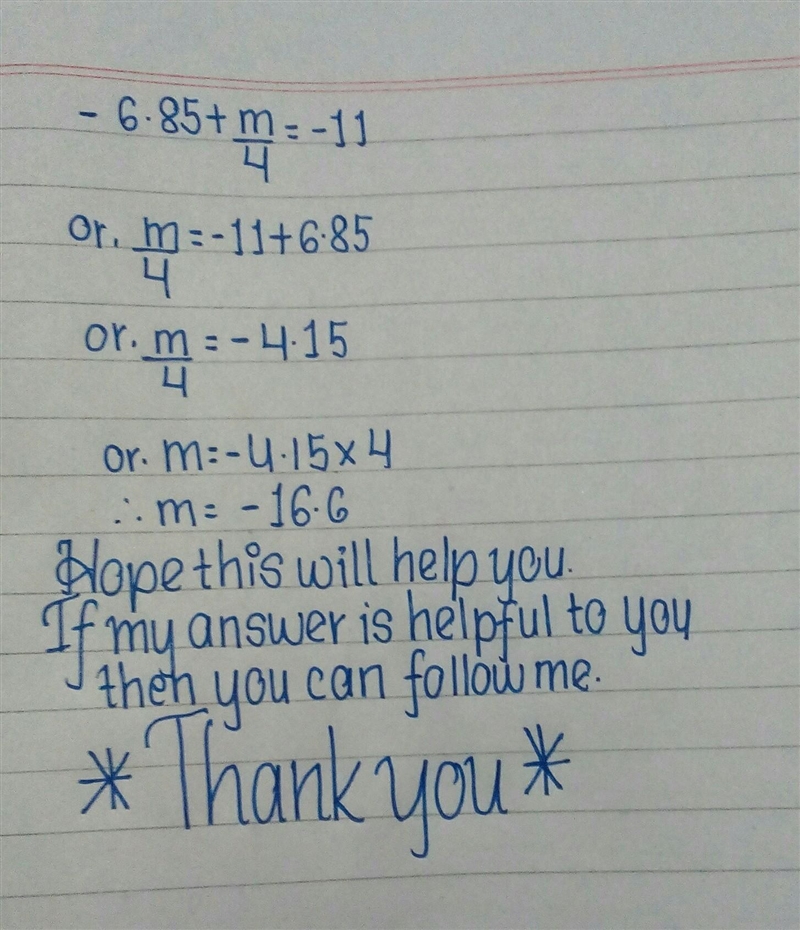 - 6.85 + m/4 = -11
or. m/4 = -11 + 6.85
or. m/4 = - 4.15
or. m = - 4.15 × 4
∴ m = - 16.6
Hope this will help you.
If my answer is helpful to you
then you can follow me.
* Thank you *